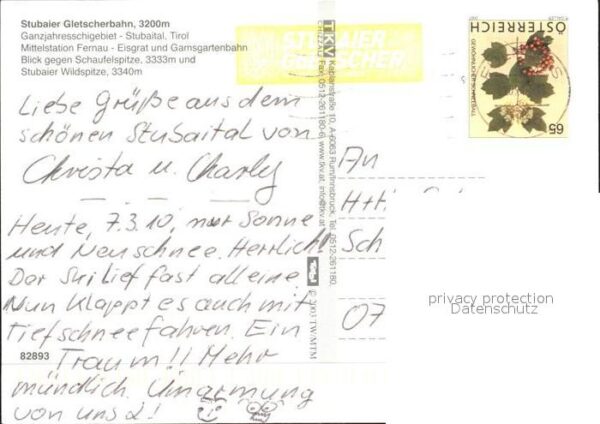 Stubaier Gletscherbahn, 3200m
Ganzjahresschigebiet - Stubaital, Tirol
Mittelstation Fernau - Eisgrat und Gamsgartenbahn
Blick gegen Schaufelspitze, 3333m und
Stubaier Wildspitze, 3340m
Liebe Grüße aus dem
schönen Stubaital von
Christa u. Charly
Heute, 7.3.10, nur Sonne
und Neuschnee. Herrlich!
Der Ski lief fast alleine
Nun klappt es auch mit
Tiefschneefahren. Ein
Traum!! Mehr
mündlich. Umarmung
von uns 2!
82893
STUBAIER
GLETSCHER
TKV
Kaplanstraße 10, A-6063 Rum/Innsbruck, Tel. 0512-261180,
Fax: 0512-261180-6 www.tkv.at, info@tkv.at
Tirol
© 2003 TW/MTM
ÖSTERREICH
65
An
H+H
Sch
07
privacy protection
Datenschutz